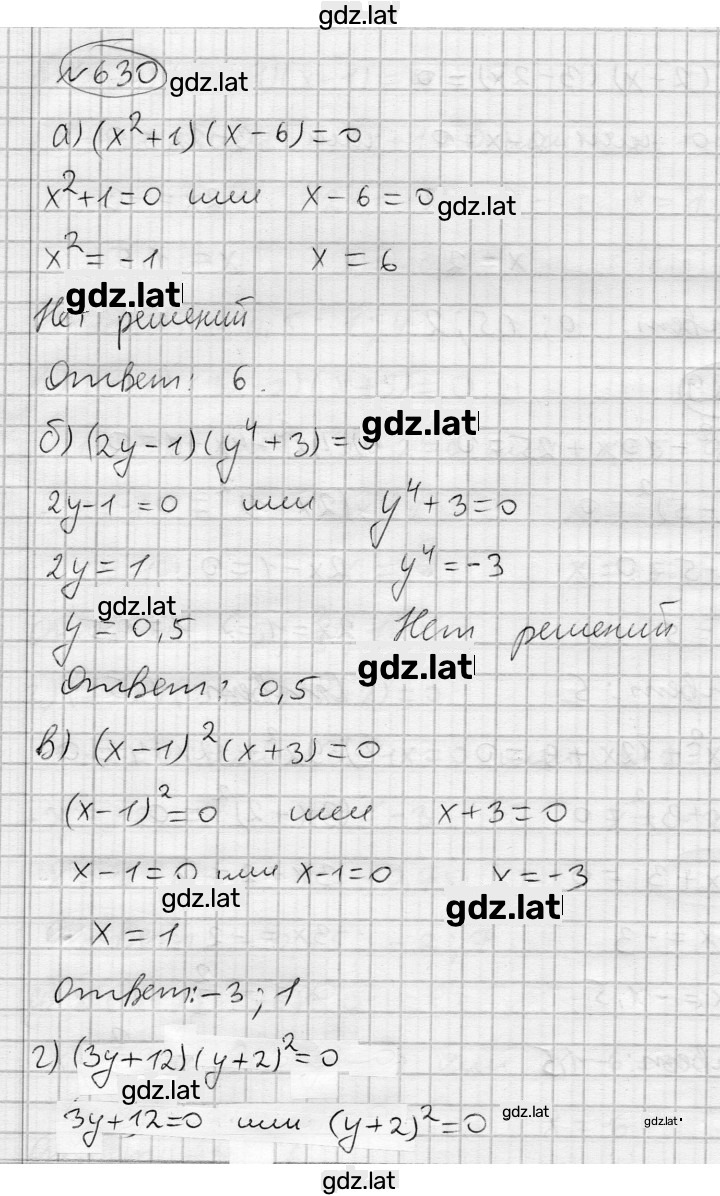 gdz.lat
№630 gdz.lat
а) (x²+1)(x-6)=0
x²+1=0 или x-6=0 gdz.lat
x²=-1 x=6
gdz.lat
Нет решений
Ответ: 6.
б) (2y-1)(y⁴+3)=0 gdz.lat
2y-1=0 или y⁴+3=0
2y=1 y⁴=-3
gdz.lat
y=0,5 Нет решений
gdz.lat
Ответ: 0,5
в) (x-1)²(x+3)=0
(x-1)²=0 или x+3=0
x-1=0 или x-1=0 x=-3
gdz.lat gdz.lat
x=1
Ответ: -3; 1
г) (3y+12)(y+2)²=0
gdz.lat
3y+12=0 или (y+2)²=0 gdz.lat gdz.lat
gdz.lat